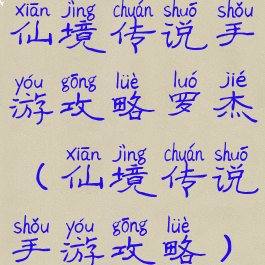 xiān jìng chuán shuō shǒu
仙境传说手
yóu gōng lüè luó jié
游攻略罗杰
xiān jìng chuán shuō
（仙境传说
shǒu yóu gōng lüè
手游攻略）